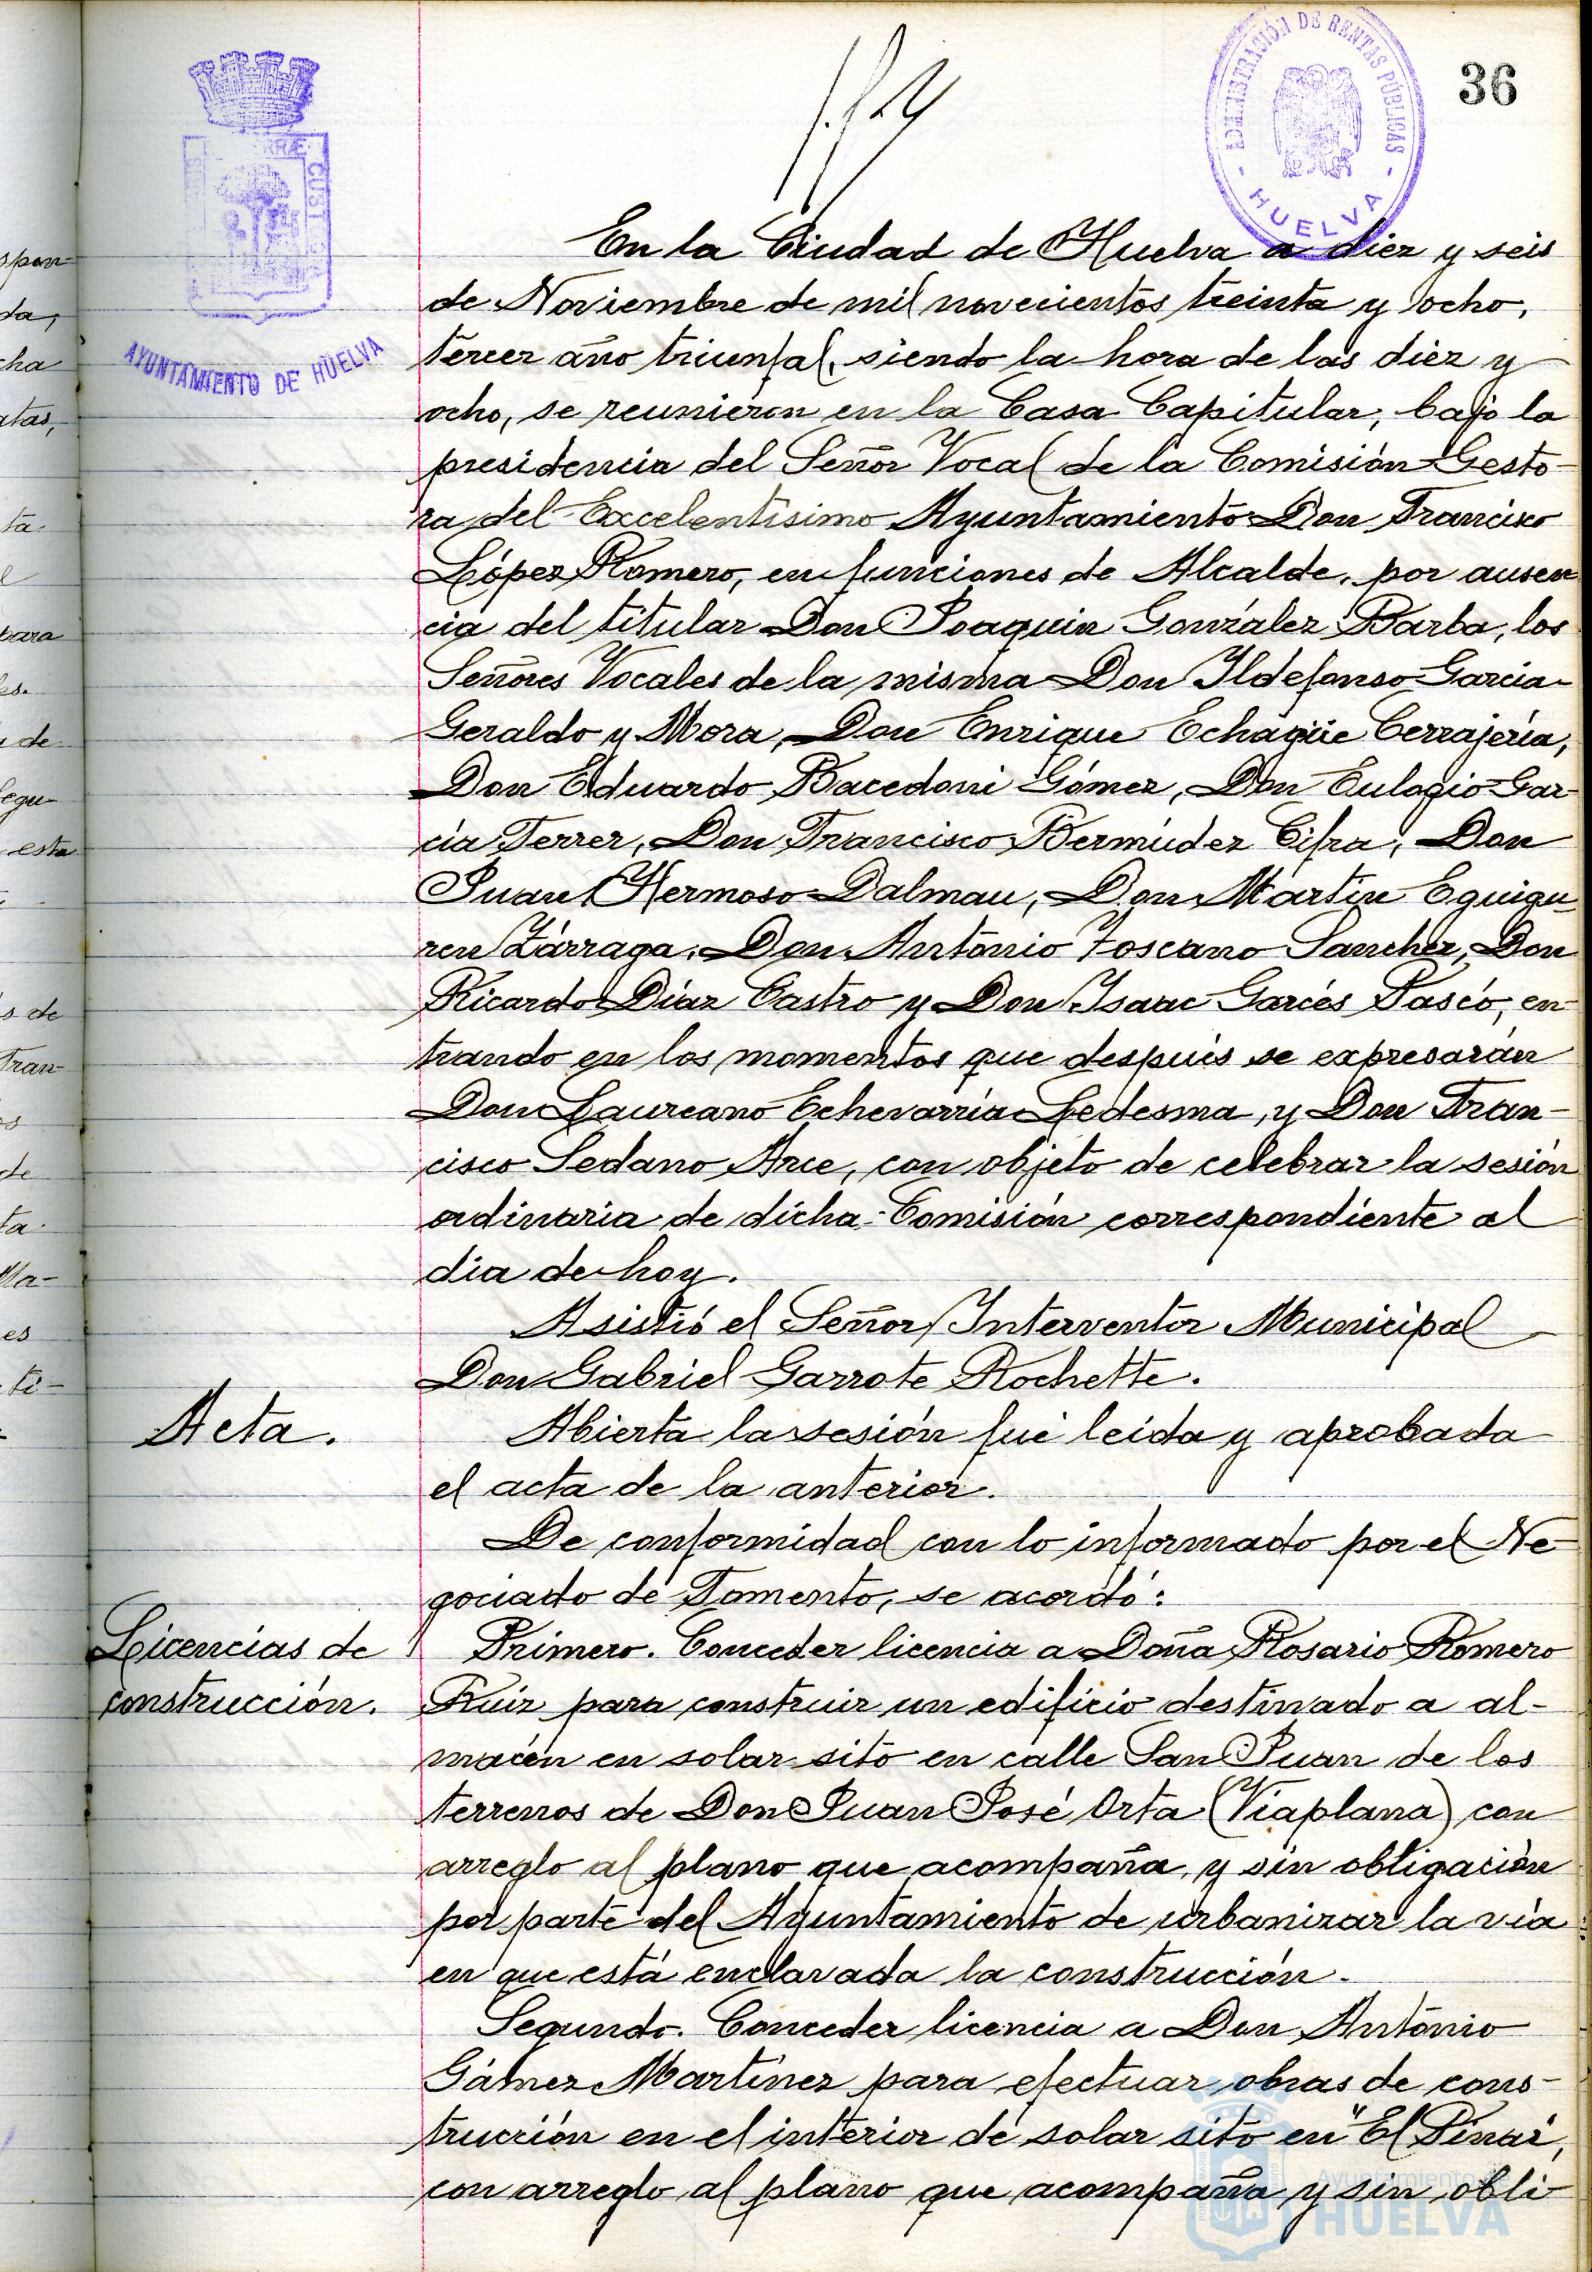 36
ADMINISTRACIÓN DE RENTAS PÚBLICAS
- HUELVA -
AYUNTAMIENTO DE HUELVA
En la Ciudad de Huelva a diez y seis
de Noviembre de mil novecientos treinta y ocho,
tercer año triunfal, siendo la hora de las diez y
ocho, se reunieron en la Casa Capitular, bajo la
presidencia del Señor Vocal de la Comisión Gesto-
ra del Excelentísimo Ayuntamiento Don Francisco
López Romero, en funciones de Alcalde, por ausen
cia del titular Don Joaquin González Barba, los
Señores Vocales de la misma Don Ildefonso Garcia-
Geraldo y Mora, Don Enrique Echagüe Cerrajería,
Don Eduardo Bacedoni Gómez, Don Eulogio Gar-
cía Ferrer, Don Francisco Bermúdez Cifra, Don
Juan Hermoso Dalmau, Don Martín Eguigu-
ren Zárraga, Don Antonio Toscano Sanchez, Don
Ricardo Díaz Castro y Don Isaac Garcés Pascó, en-
trando en los momentos que después se expresarán
Don Laureano Echevarría Ledesma, y Don Fran-
cisco Sedano Arce, con objeto de celebrar la sesión
ordinaria de dicha Comisión correspondiente al
dia de hoy.
Asistió el Señor Interventor Municipal
Don Gabriel Garrote Rochette.
Acta.
Abierta la sesión fué leida y aprobada
el acta de la anterior.
De conformidad con lo informado por el Ne-
gociado de Fomento, se acordó:
Licencias de
construcción.
Primero. Conceder licencia a Doña Rosario Romero
Ruiz para construir un edificio destinado a al-
macén en solar sito en calle San Juan de los
terrenos de Don Juan José Orta (Viaplana) con
arreglo al plano que acompaña, y sin obligación
por parte del Ayuntamiento de urbanizar la vía
en que está enclavada la construcción.
Segundo. Conceder licencia a Don Antonio
Gámez Martínez para efectuar obras de cons-
trucción en el interior de solar sito en "El Pinar",
con arreglo al plano que acompaña y sin obli-
Ayuntamiento de
HUELVA